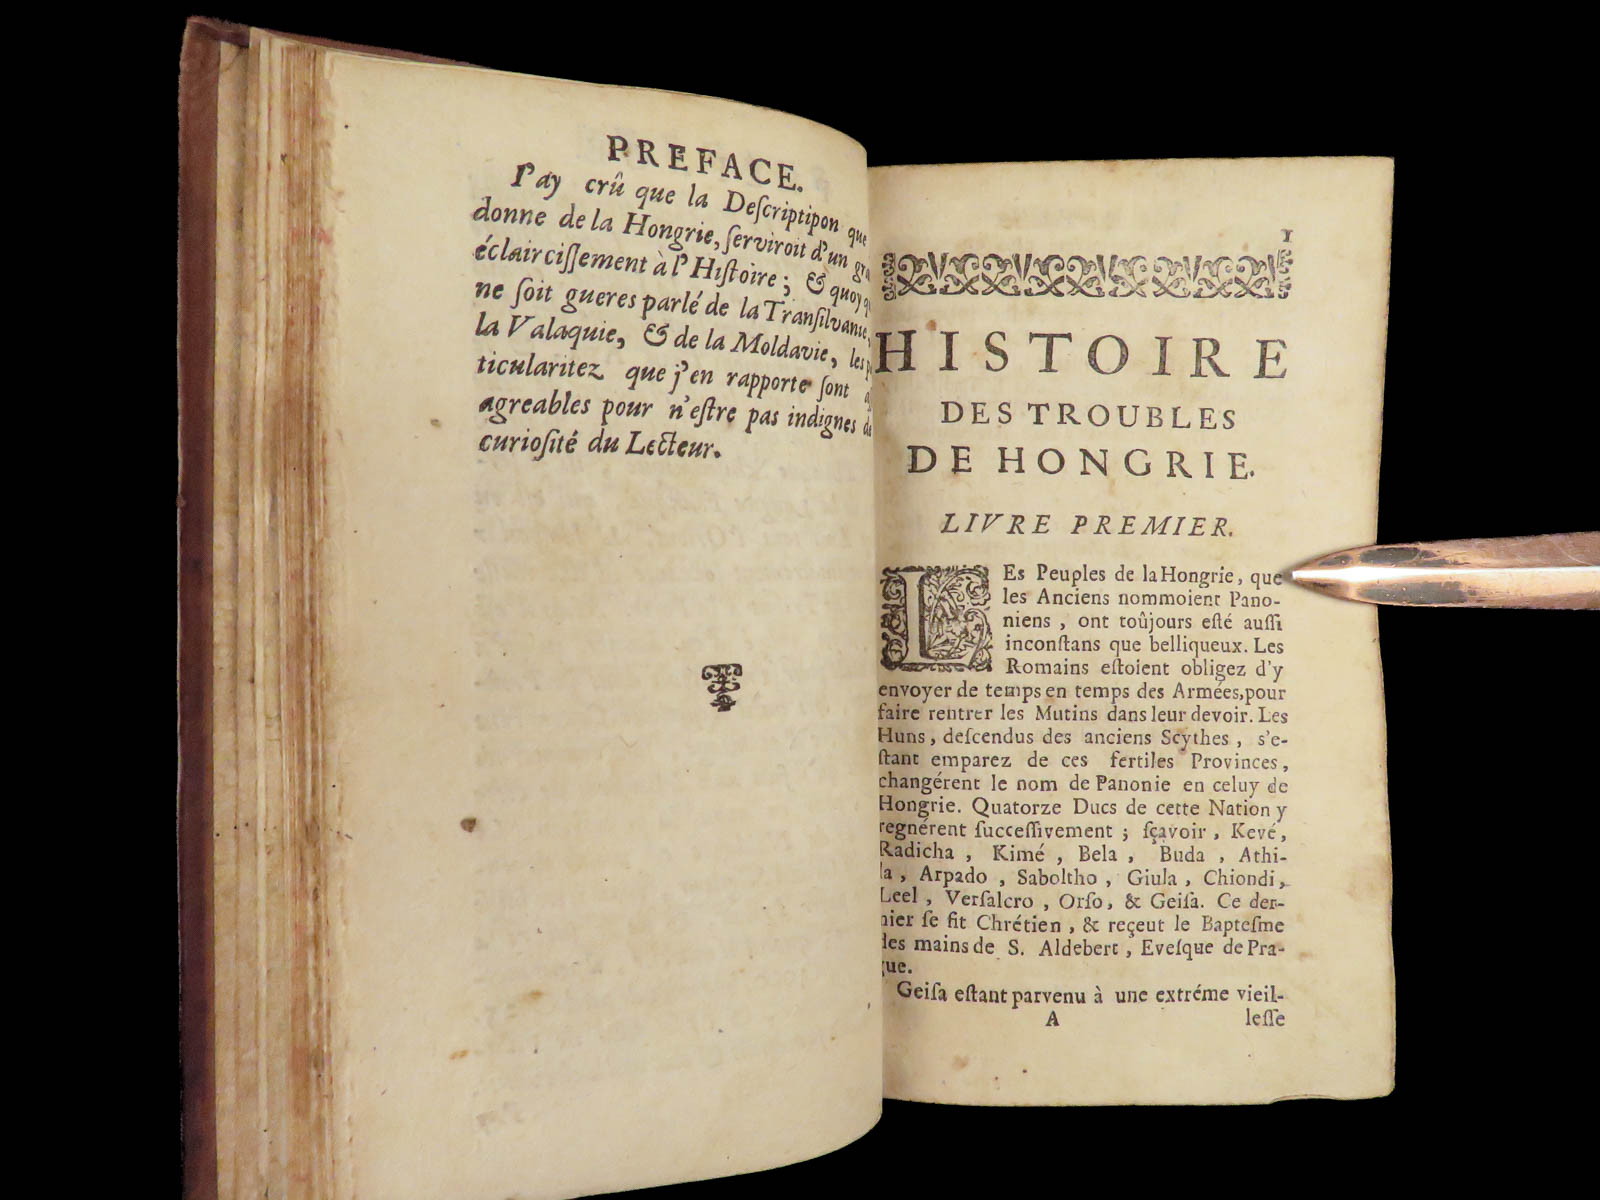 PREFACE.
J'ay crû que la Deſcriptipon que
donne de la Hongrie, ſerviroit d'un
éclairciſſement à l'Hiſtoire; & quoy
ne ſoit gueres parlé de la Tranſilvanie,
la Valaquie, & de la Moldavie, les
ticularitez que j'en rapporte ſont
agreables pour n'eſtre pas indignes
curioſité du Lecteur.
1
HISTOIRE
DES TROUBLES
DE HONGRIE.
LIVRE PREMIER.
LEs Peuples de la Hongrie, que
les Anciens nommoient Pano-
niens, ont toûjours eſté auſſi
inconſtans que belliqueux. Les
Romains eſtoient obligez d'y
envoyer de temps en temps des Armées, pour
faire rentrer les Mutins dans leur devoir. Les
Huns, deſcendus des anciens Scythes, s'e-
ſtant emparez de ces fertiles Provinces,
changérent le nom de Panonie en celuy de
Hongrie. Quatorze Ducs de cette Nation y
regnérent ſucceſſivement; ſçavoir, Kevé,
Radicha, Kimé, Bela, Buda, Athi-
la, Arpado, Saboltho, Giula, Chiondi,
Leel, Verſalcro, Orſo, & Geiſa. Ce der-
nier ſe fit Chrétien, & reçeut le Bapteſme
des mains de S. Aldebert, Eveſque de Pra-
gue.
Geiſa eſtant parvenu à une extréme vieil-
A leſſe